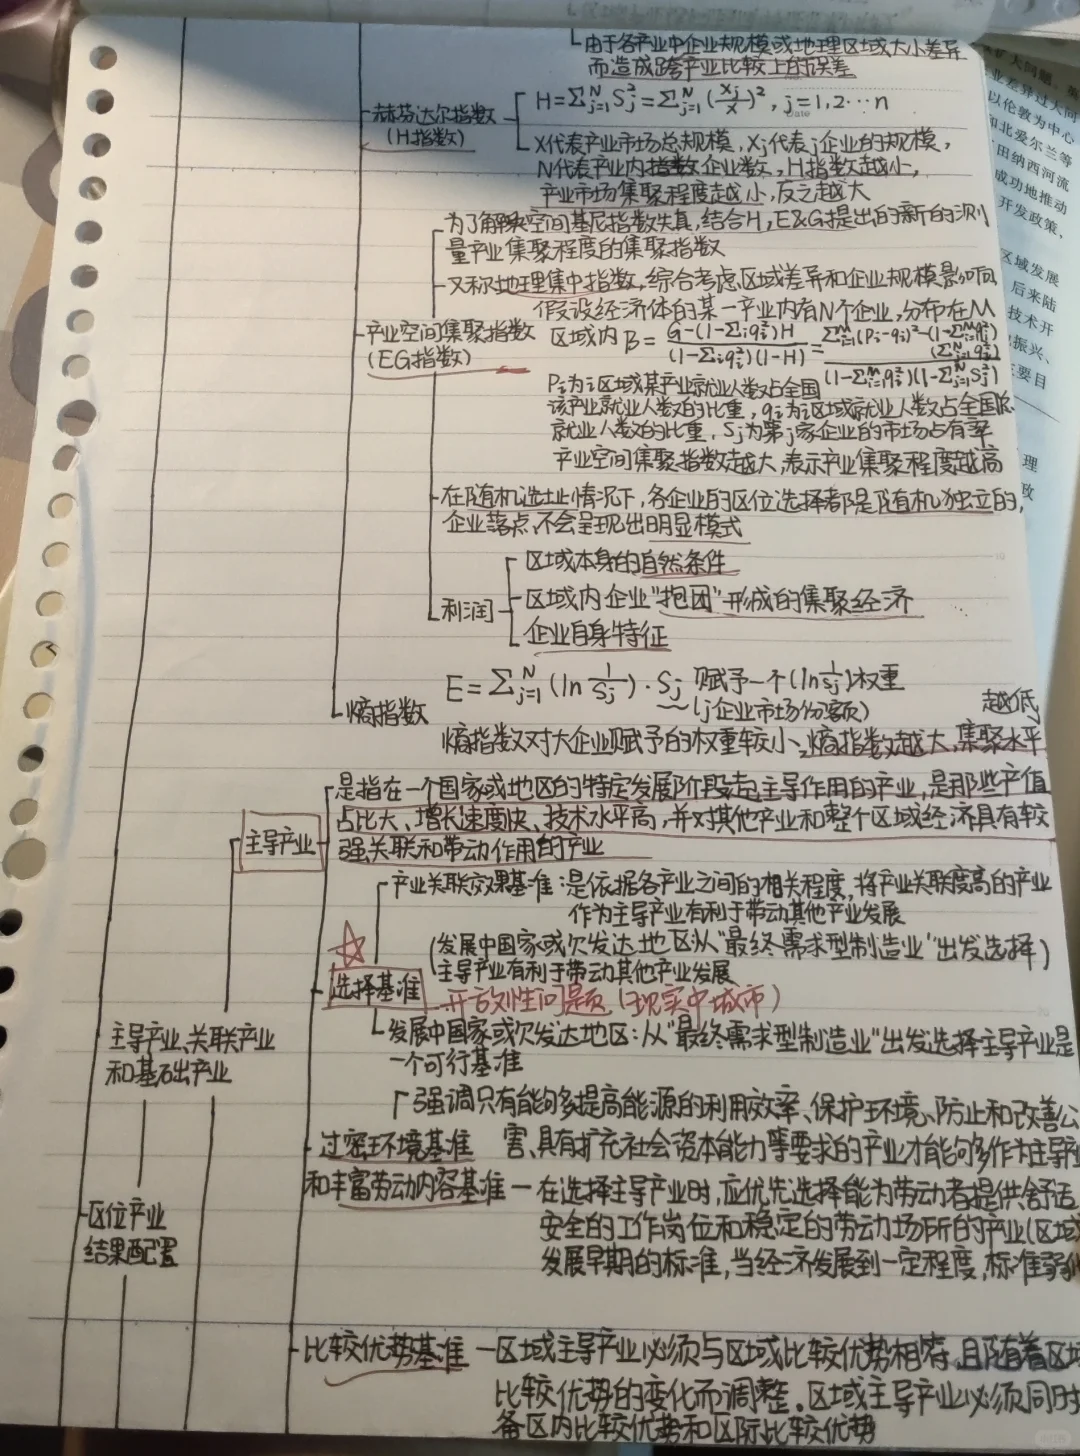 由于各产业中企业规模或地理区域大小差异
而造成跨产业比较上的误差
赫芬达尔指数
(H指数)
H=Σ_{j=1}^{N} S_j²=Σ_{j=1}^{N}(X_j/X)², j=1,2…n
Date
X代表产业市场总规模,Xj代表j企业的规模,
N代表产业内企业数,H指数越小,
产业市场集聚程度越小,反之越大
为了解决空间基尼指数失真,结合H,E&G提出的新的测
量产业集聚程度的集聚指数
又称地理集中指数,综合考虑区域差异和企业规模影响
假设经济体的某一产业内有N个企业,分布在M
产业空间集聚指数
(EG指数)
区域内 B= (G-(1-Σ_i q_i²)H)/((1-Σ_i q_i²)(1-H)) = (Σ_{i=1}^{M}(P_i-q_i)²-(1-Σ_{i=1}^{M} q_i²)(Σ_{j=1}^{N} q_j²))/((1-Σ_{i=1}^{M} q_i²)(1-Σ_{j=1}^{N} S_j²))
Pi为i区域某产业就业人数占全国
该产业就业人数的比重,qi为i区域就业人数占全国总
就业人数的比重,Sj为第j家企业的市场占有率
产业空间集聚指数越大,表示产业集聚程度越高
在随机选址情况下,各企业的区位选择都是随机独立的,
企业落点不会呈现出明显模式
利润
区域本身的自然条件
区域内企业“抱团”形成的集聚经济
企业自身特征
熵指数
E=Σ_{j=1}^{N}(ln 1/S_j)·S_j 赋予一个(ln 1/S_j)权重
(j企业市场份额)
熵指数对大企业赋予的权重较小、熵指数越大,集聚水平
越低
主导产业
是指在一个国家或地区的特定发展阶段起主导作用的产业,是那些产值
占比大、增长速度快、技术水平高,并对其他产业和整个区域经济具有较
强关联和带动作用的产业
产业关联效果基准:是依据各产业之间的相关程度,将产业关联度高的产业
作为主导产业有利于带动其他产业发展
(发展中国家或欠发达地区从“最终需求型制造业”出发选择)
主导产业有利于带动其他产业发展
选择基准
开放性问题(现实中城市)
发展中国家或欠发达地区:从“最终需求型制造业”出发选择主导产业是
一个可行基准
主导产业、关联产业
和基础出产业
强调只有能够多提高能源的利用效率、保护环境、防止和改善公
过密环境基准
害、具有扩充社会资本能力等要求的产业才能够多作为主导产
和丰富劳动内容基准
在选择主导产业时,应优先选择能为劳动者提供舒适
安全的工作岗位和稳定的劳动场所的产业(区域
发展早期的标准,当经济发展到一定程度,标准弱
区位产业
结果配置
比较优势基准
区域主导产业必须与区域比较优势相符,且随着区域
比较优势的变化而调整。区域主导产业必须同时
备区内比较优势和区际比较优势
大问题,英
业差异过大问
以伦敦为中心
和北爱尔兰等
田纳西河流
成功地推动
开发政策、
区域发展
后来陆
技术开
振兴、
要目
理
政